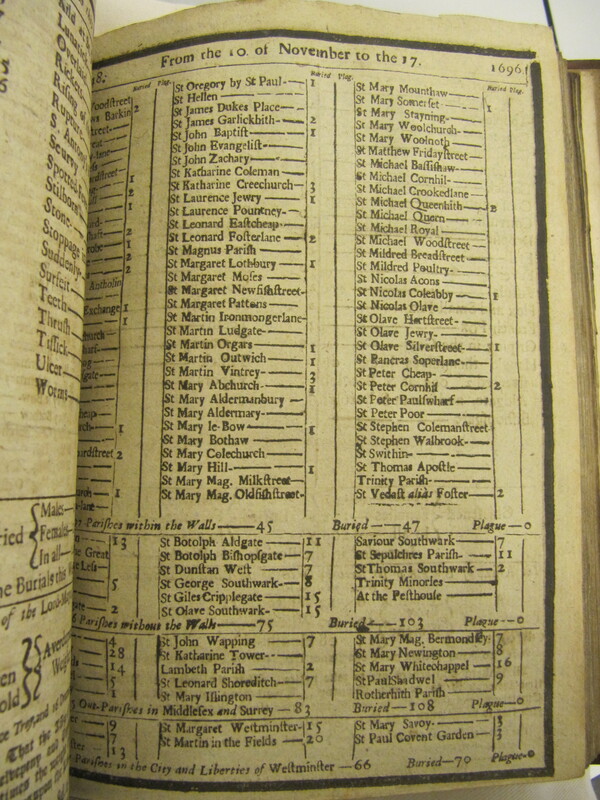 From the 10. of November to the 17.
1696
18.
Buried Plag.
Buried Plag.
Buried Plag.
Woodstreet
Barkin
Antholin
Exchange 1
St Gregory by St Paul 1
St Hellen
St James Dukes Place
St James Garlickhith 2
St John Baptist 1
St John Evangelist
St John Zachary
St Katharine Coleman
St Katharine Creechurch 3
St Laurence Jewry 1
St Laurence Pountney
St Leonard Eastcheap
St Leonard Fosterlane 2
St Magnus Parish
St Margaret Lothbury 1
St Margaret Moses
St Margaret Newfishstreet
St Margaret Pattons
St Martin Ironmongerlane
St Martin Ludgate
St Martin Orgars 1
St Martin Outwich 1
St Martin Vintrey 3
St Mary Abchurch 1
St Mary Aldermanbury
St Mary Aldermary
St Mary le-Bow 1
St Mary Bothaw
St Mary Colechurch
St Mary Hill 1
St Mary Mag. Milkstreet
St Mary Mag. Oldfishstreet
St Mary Mounthaw
St Mary Somerset 1
St Mary Stayning
St Mary Woolchurch
St Mary Woolnoth
St Matthew Fridaystreet
St Michael Bassishaw
St Michael Cornhil
St Michael Crookedlane
St Michael Queenhith 2
St Michael Quern
St Michael Royal
St Michael Woodstreet
St Mildred Breadstreet
St Mildred Poultry
St Nicolas Acons
St Nicolas Coleabby 1
St Nicolas Olave
St Olave Hartstreet
St Olave Jewry
St Olave Silverstreet 1
St Pancras Soperlane
St Peter Cheap
St Peter Cornhil 2
St Peter Paulswharf
St Peter Poor
St Stephen Colemanstreet
St Stephen Walbrook
St Swithin
St Thomas Apostle
Trinity Parish
St Vedast alias Foster 2
Parishes within the Walls 45 Buried 47 Plague 0
13
Great
5
2
St Botolph Aldgate 11
St Botolph Bishopsgate 7
St Dunstan West 7
St George Southwark 8
St Giles Cripplegate 15
St Olave Southwark 15
Saviour Southwark 7
St Sepulchres Parish 11
St Thomas Southwark 2
Trinity Minories
At the Pesthouse
Parishes without the Walls 75 Buried 103 Plague 0
4
28
14
5
1
St John Wapping 7
St Katharine Tower
Lambeth Parish 2
St Leonard Shoreditch 7
St Mary Islington
St Mary Mag. Bermondsey 7
St Mary Newington 8
St Mary Whitechappel 16
St Paul Shadwel 9
Rotherhith Parish
Out-Parishes in Middlesex and Surrey 83 Buried 108 Plague 0
9
7
13
St Margaret Westminster 15
St Martin in the Fields 20
St Mary Savoy 3
St Paul Covent Garden 3
Parishes in the City and Liberties of Westminster 66 Buried 70 Plague 0
Rupture
Scurvy
Stilborn
Stone
Stoppage
Suddenly
Surfeit
Teeth
Thrush
Tissick
Ulcer
Worms
Males
Females
In all
the Burials this
of the Lord